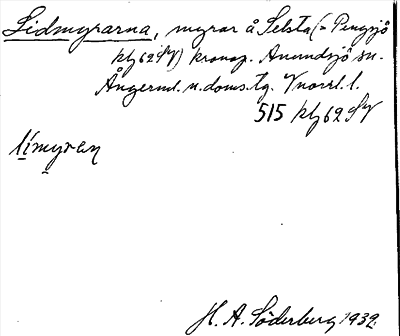 Lidmyrarna, myrar å Selsta (= Pengsjö
klg 62 SV) kronog. Anundsjö sn.
Ångerml. n. doms.tg. Vnorrl. l.
515 klg 62 SV
límyran
H. A. Söderberg 1932